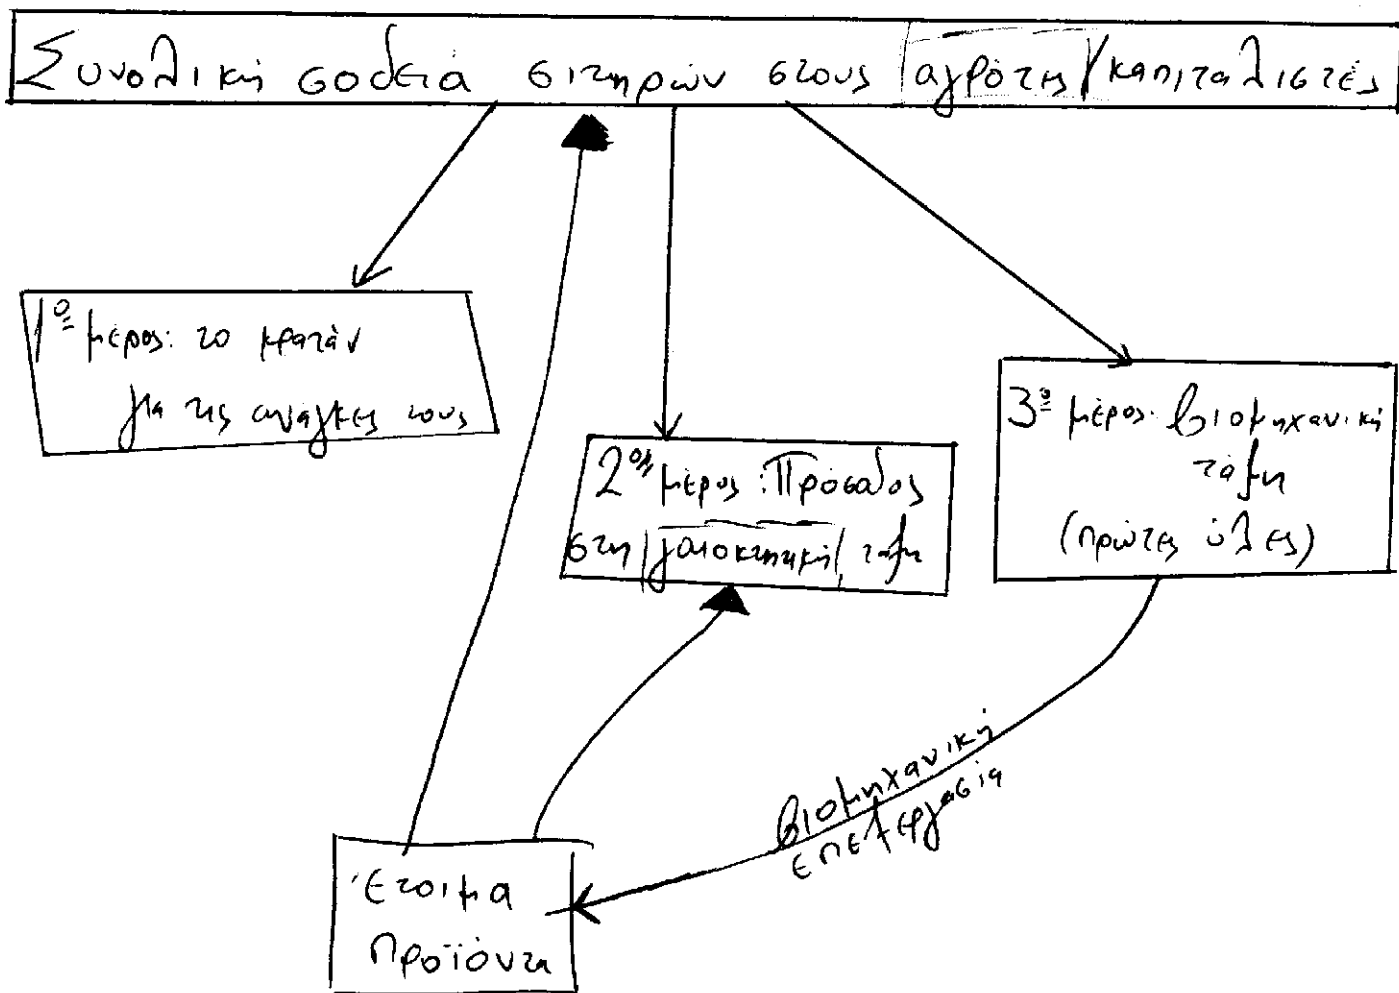 Συνολική σοδειά σιτηρών στους αγρότες/καπιταλιστές
1º μέρος: το κρατάν
για τις ανάγκες τους
2º μέρος: Πρόσοδος
στη γαιοκτητική τάξη
3º μέρος: βιομηχανική
τάξη
(πρώτες ύλες)
βιομηχανική
επεξεργασία
Έτοιμα
Προϊόντα